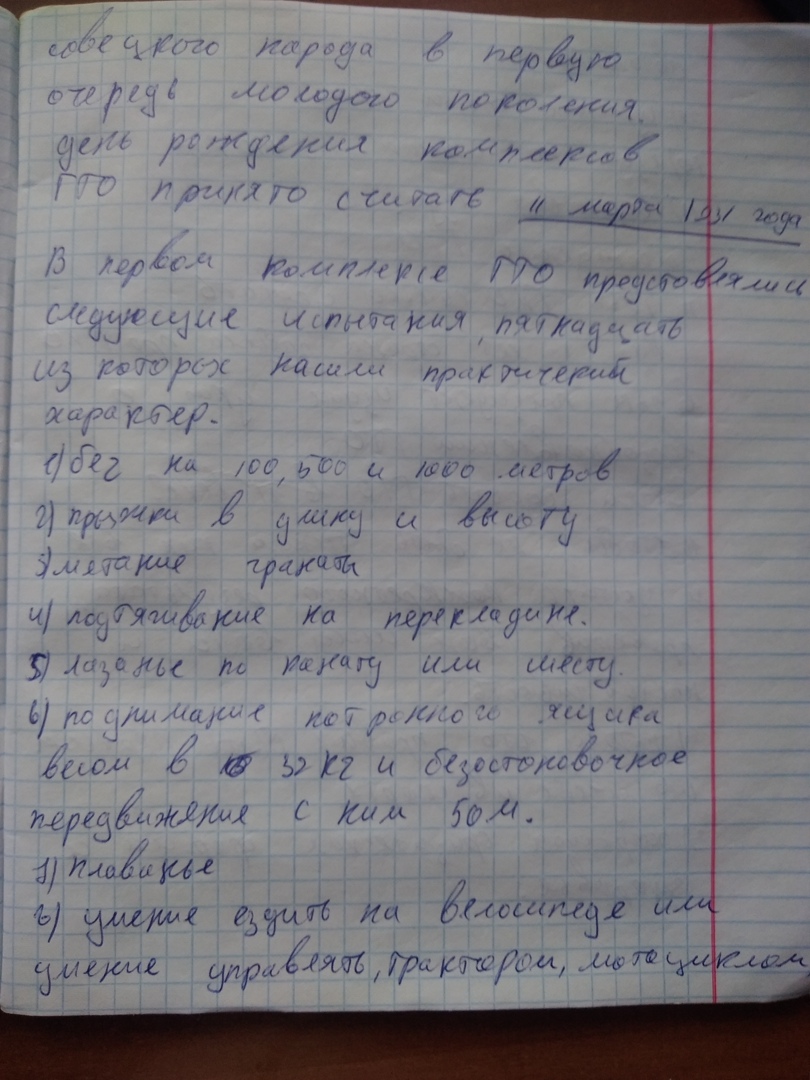 советского народа в первую
очередь молодого поколения.
день рождения комплексов
ГТО принято считать 11 марта 1931 года
В первом комплексе ГТО предстовлялись
следующие испытания, пятнадцать
из которых насили практичекий
характер.
1) бег на 100, 500 и 1000 метров
2) прыжки в длину и высоту
3) метание гранаты
4) подтягивание на перекладине.
5) лазанье по канату или шесту.
6) поднимание потронного ящика
весом в 32 кг и безостоновочное
передвижение с ним 50 м.
7) плаванье
8) умение ездить на велосипеде или
умение управлять, трактором, мотоциклом